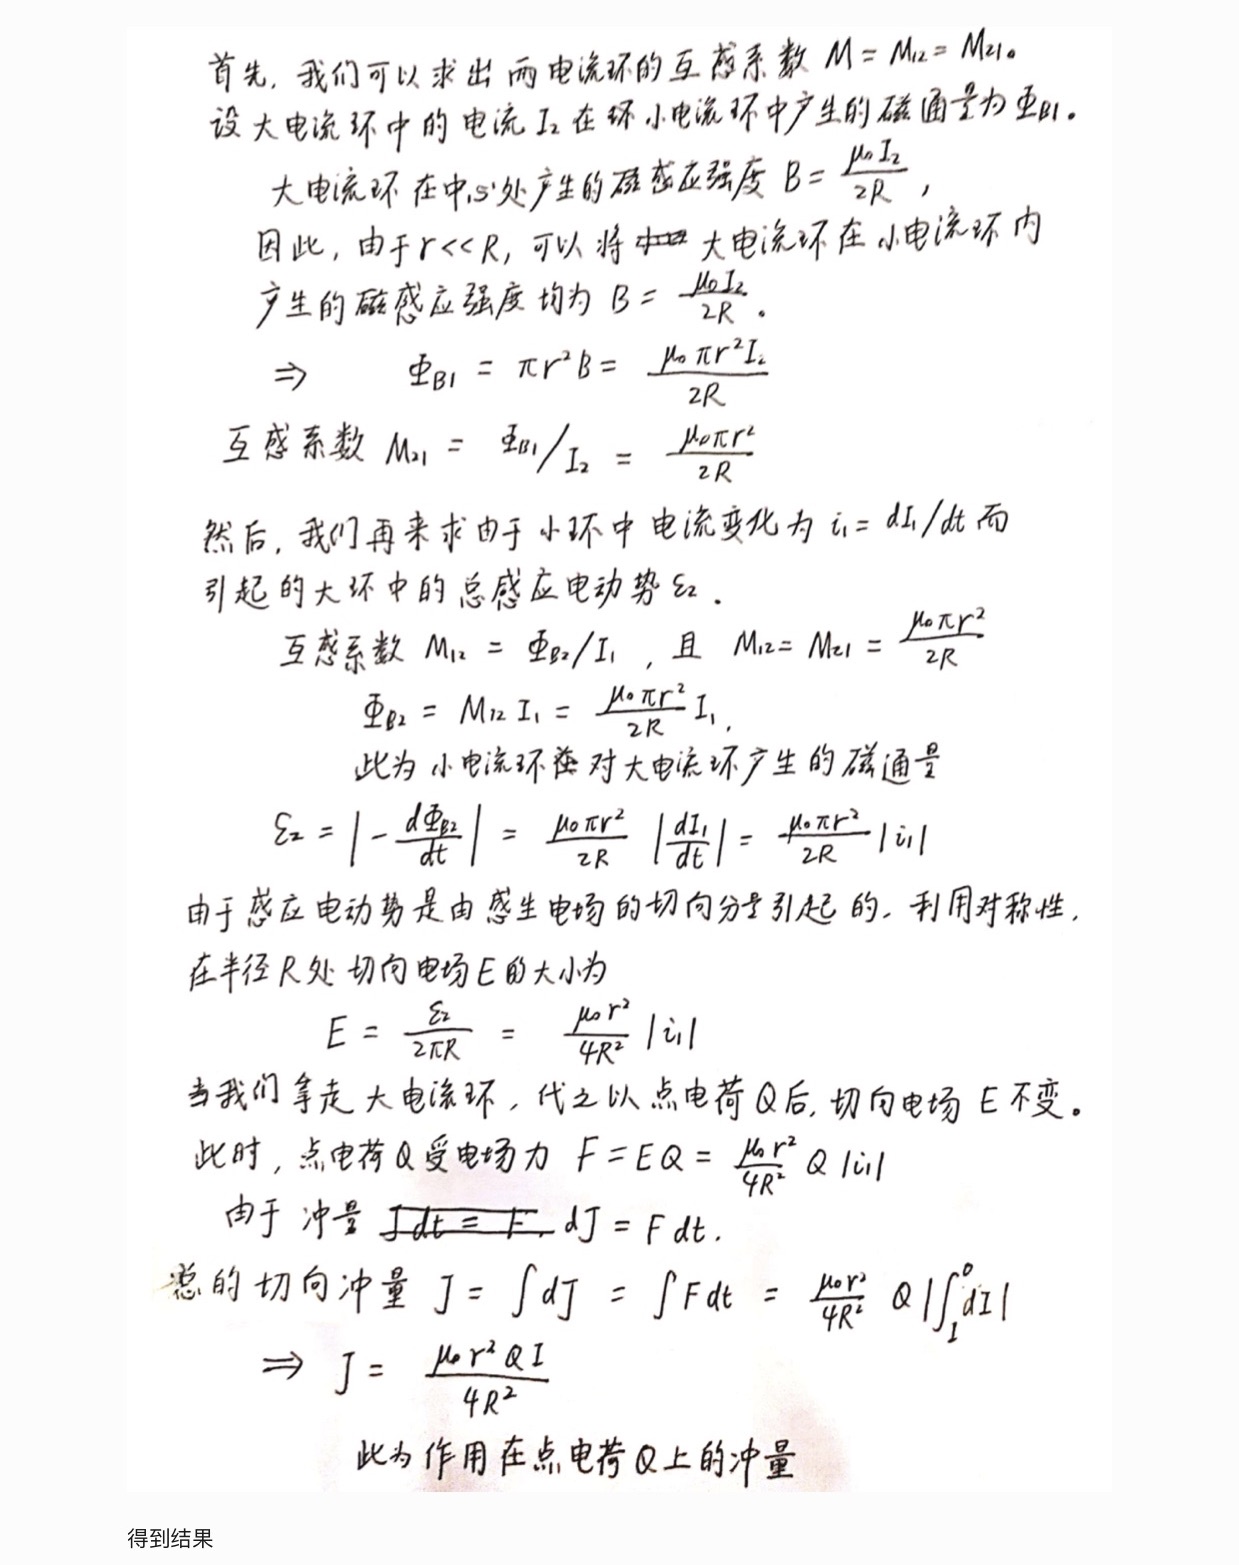 首先, 我们可以求出两电流环的互感系数 M = M₁₂ = M₂₁。
设大电流环中的电流 I₂ 在环小电流环中产生的磁通量为 Φ_B1。
大电流环在中心处产生的磁感应强度 B = μ₀I₂/2R ,
因此, 由于 r << R, 可以将 大电流环在小电流环内
产生的磁感应强度均为 B = μ₀I₂/2R 。
⇒ Φ_B1 = πr²B = μ₀πr²I₂/2R
互感系数 M₂₁ = Φ_B1/I₂ = μ₀πr²/2R
然后, 我们再来求由于小环中电流变化为 i₁ = dI₁/dt 而
引起的大环中的总感应电动势 ε₂ .
互感系数 M₁₂ = Φ_B2/I₁ , 且 M₁₂ = M₂₁ = μ₀πr²/2R
Φ_B2 = M₁₂ I₁ = μ₀πr²/2R I₁ ,
此为小电流环对大电流环产生的磁通量
ε₂ = |-dΦ_B2/dt| = μ₀πr²/2R |dI₁/dt| = μ₀πr²/2R |i₁|
由于感应电动势是由感生电场的切向分量引起的, 利用对称性,
在半径R处切向电场E的大小为
E = ε₂/2πR = μ₀r²/4R² |i₁|
当我们拿走大电流环, 代之以点电荷Q后, 切向电场 E 不变。
此时, 点电荷Q受电场力 F = EQ = μ₀r²/4R² Q |i₁|
由于 冲量 J dt = F. dJ = F dt .
总的切向冲量 J = ∫dJ = ∫F dt = μ₀r²/4R² Q |∫_I^0 dI|
⇒ J = μ₀r²QI/4R²
此为作用在点电荷Q上的冲量
得到结果